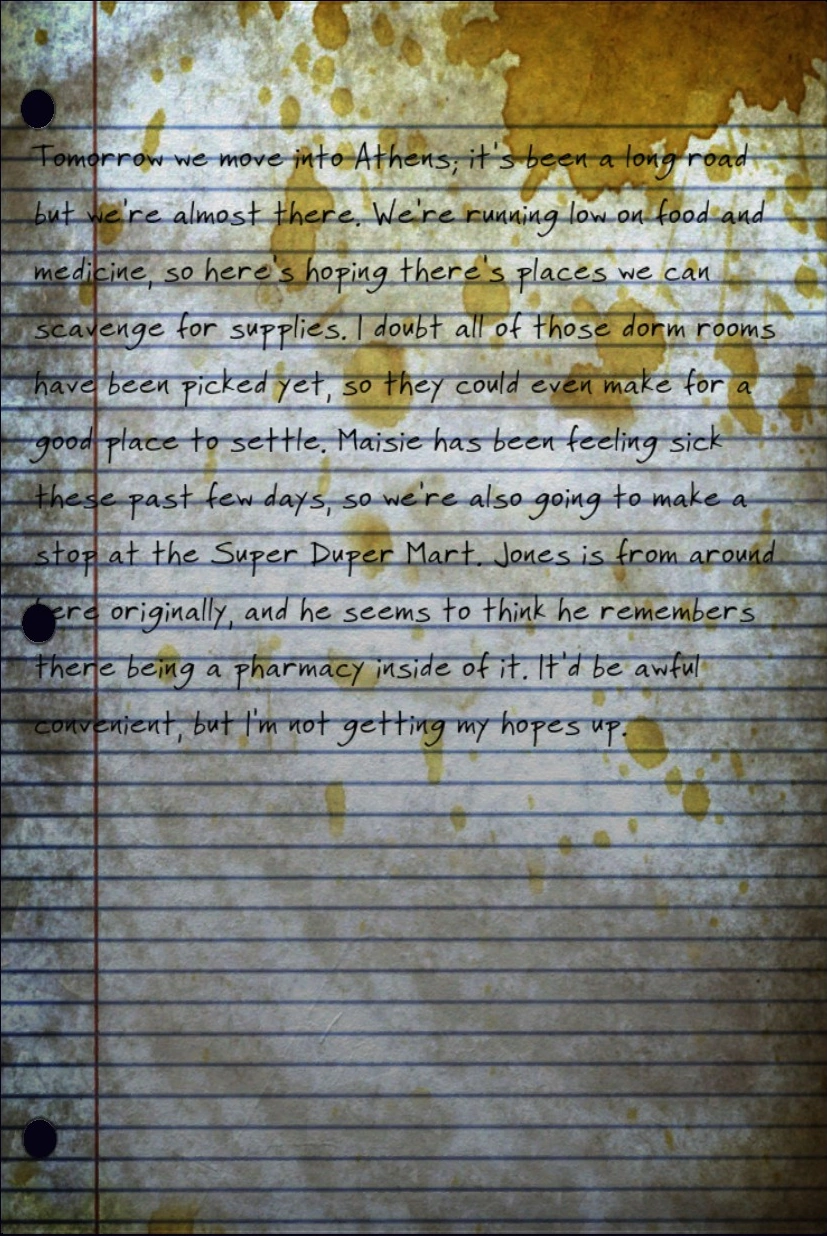 Tomorrow we move into Athens; it's been a long road
but we're almost there. We're running low on food and
medicine, so here's hoping there's places we can
scavenge for supplies. I doubt all of those dorm rooms
have been picked yet, so they could even make for a
good place to settle. Maisie has been feeling sick
these past few days, so we're also going to make a
stop at the Super Duper Mart. Jones is from around
here originally, and he seems to think he remembers
there being a pharmacy inside of it. It'd be awful
convenient, but I'm not getting my hopes up.